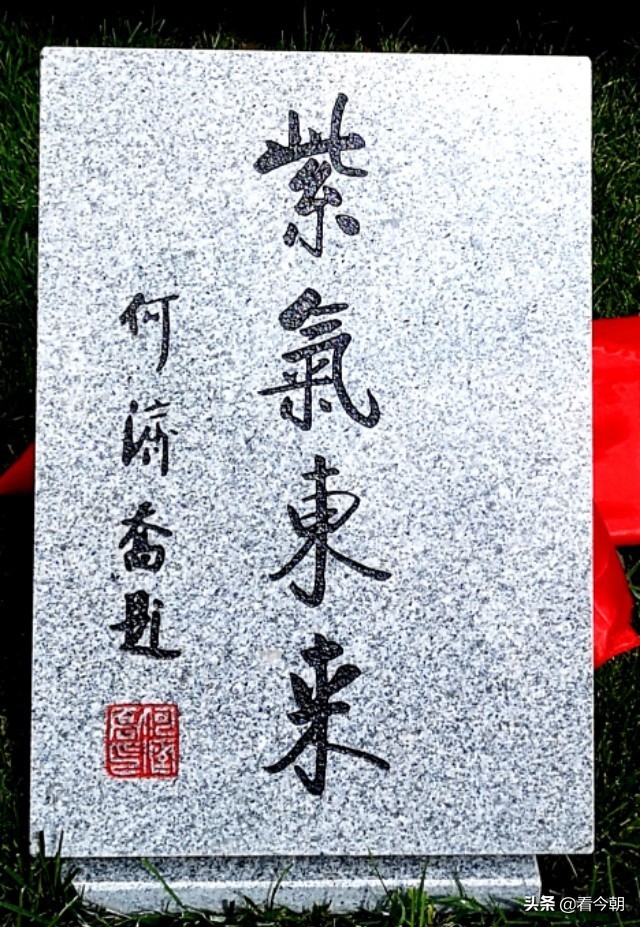 紫氣東来
何濟喬題
头条 @看今朝